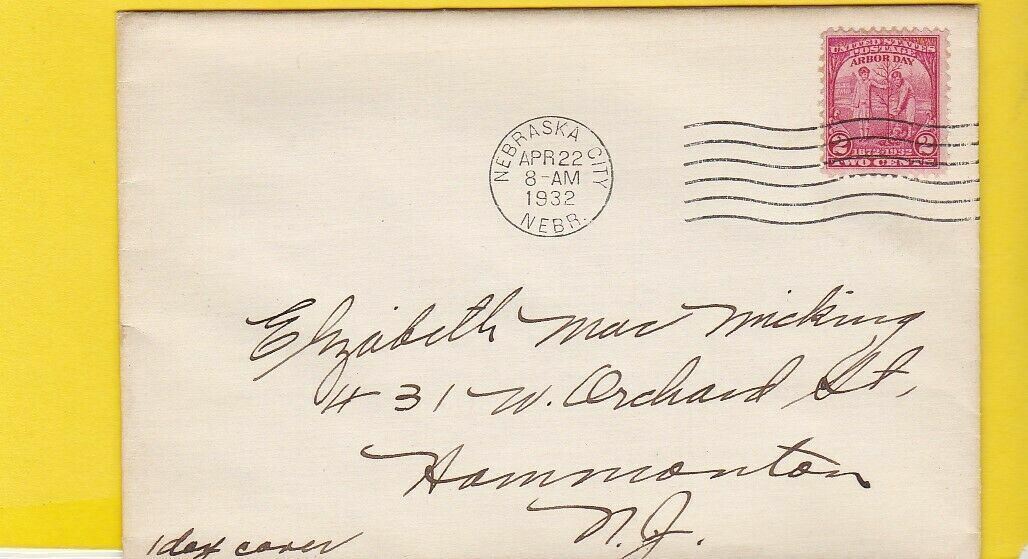 UNITED STATES
POSTAGE
ARBOR DAY
2 2
1872-1932
TWO CENTS
NEBRASKA CITY
APR 22
8-AM
1932
NEBR.
Elizabeth Mac Micking
# 31 W. Orchard St,
Hammonton
N.J.
1 day cover